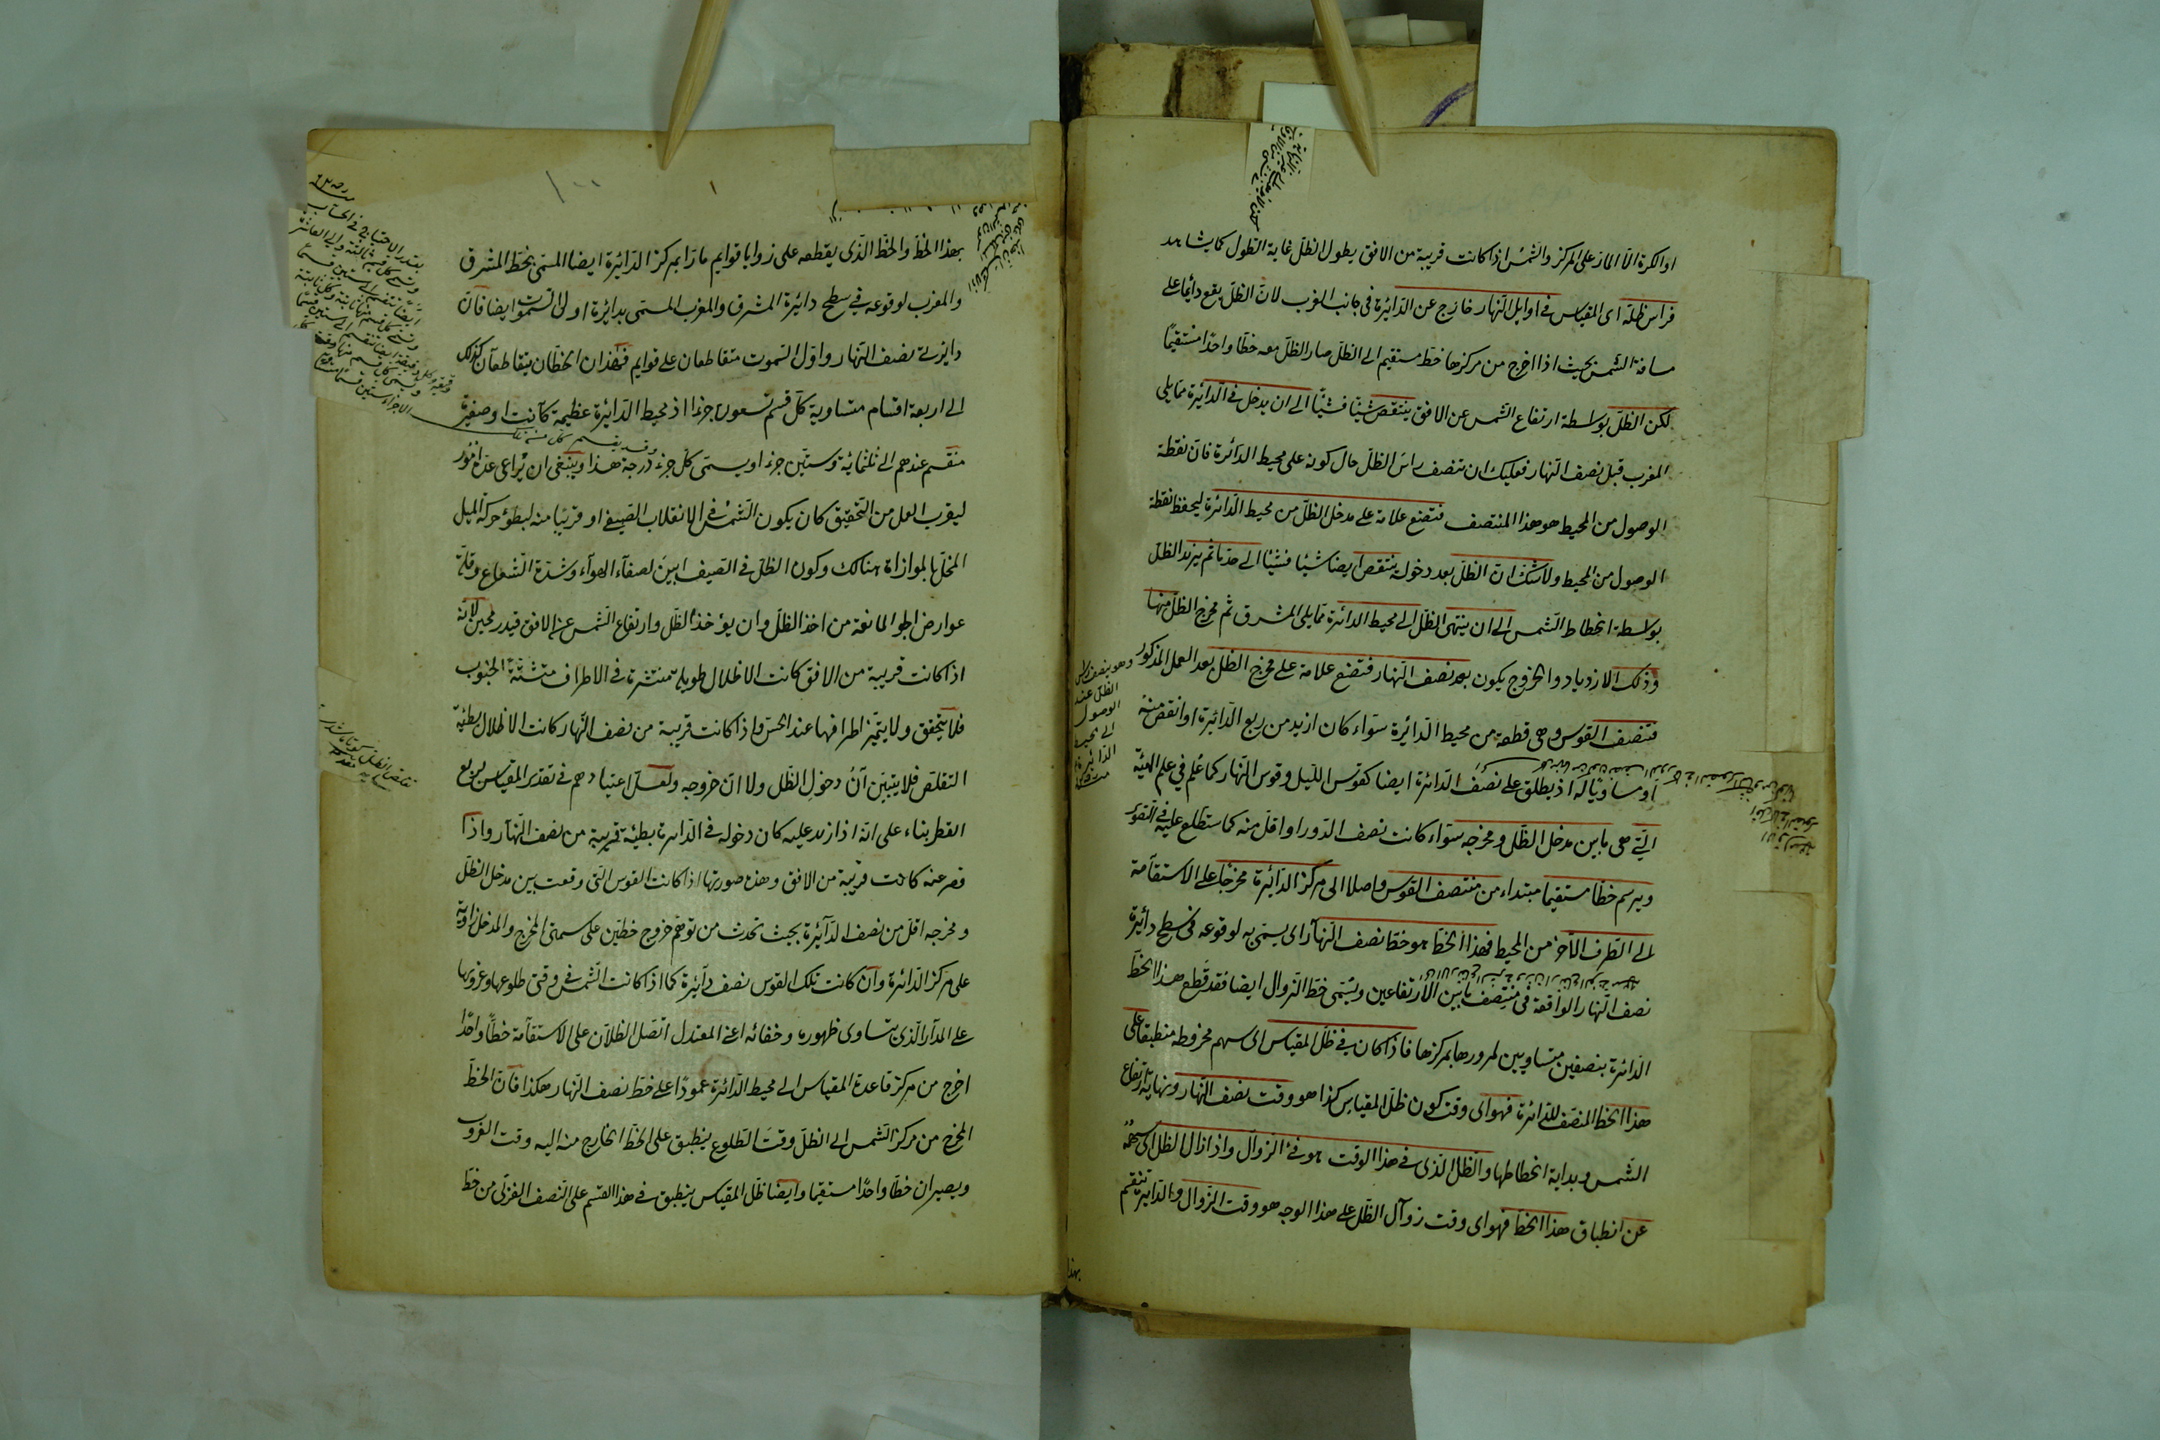 او الكرة الا المار على المركز والشمس اذا كانت قريبة من الافق يطول الظل غاية الطول كما يشاهد
فراس ظله اى المقياس فى اوايل النهار خارج عن الدائرة فى جانب المغرب لان الظل يقع دائما على
مسامتة الشمس بحيث اذا اخرج من مركزها خط مستقيم الى الظل صار الظل معه خطا واحدا مستقيما
لكن الظل بواسطة ارتفاع الشمس عن الافق ينتقص شيئا فشيئا الى ان يدخل فى الدائرة مما يلى
المغرب قبل نصف النهار فعليك ان تنصف راس الظل حال كونه على محيط الدائرة فان نقطة
الوصول من المحيط هو هذا المنتصف فتضع علامة على مدخل الظل من محيط الدائرة ليحفظ نقطة
الوصول من المحيط ولا شك ان الظل بعد دخوله ينتقص ايضا شيئا فشيئا الى حد ما ثم يزيد الظل
بواسطة انحطاط الشمس الى ان ينتهى الظل الى محيط الدائرة مما يلى المشرق ثم يخرج الظل منها
وذلك الازدياد والخروج يكون بعد نصف النهار فتضع علامة على مخرج الظل بعد العمل المذكور
فتنصف القوس وهى قطعة من محيط الدائرة سواء كان ازيد من ربع الدائرة او انقص منه
او مساويا له اذ يطلق على نصف الدائرة ايضا كقوس الليل وقوس النهار كما علم فى علم الهيئة
التى هى ما بين مدخل الظل ومخرجه سواء كانت نصف الدور او اقل منه كما ستطلع عليه فى التقرير
ويرسم خطا مستقيما مبتداء من منتصف القوس واصلا الى مركز الدائرة مخرجا على الاستقامة
الى الطرف الآخر من المحيط فهذا الخط هو خط نصف النهار اى يسمى به لوقوعه فى سطح دائرة
نصف النهار الواقعة فى منتصف ما بين الارتفاعين ويسمى خط الزوال ايضا فقد قطع هذا الخط
الدائرة بنصفين متساويين لمرورها بمركزها فاذا كان فى ظل المقياس اى سهم مخروطه منطبقا على
هذا الخط المنصف للدائرة فهو اى وقت كون ظل المقياس كذا هو وقت نصف النهار ونهاية ارتفاع
الشمس وبداية انحطاطها والظل الذى فى هذا الوقت هو فئ الزوال واذا زال الظل اى سهمه
عن انطباق هذا الخط فهو اى وقت زوال الظل على هذا الوجه هو وقت الزوال والدائرة تنقسم
وهو بنصف راس
الظل عند
الوصول
الى محيط
الدائرة
بهذا
بهذا الخط والخط الذى يقطعه على زوايا قوايم مارا بمركز الدائرة ايضا المسمى بخط المشرق
والمغرب لوقوعه فى سطح دائرة المشرق والمغرب المسمى بدائرة اول السموت ايضا فان
دايرتى نصف النهار واول السموت متقاطعان على قوايم فهذان الخطان يتقاطعان كذلك
الى اربعة اقسام متساوية كل قسم تسعون جزءا اذ محيط الدائرة عظيمة كانت او صغيرة
منقسم عندهم الى ثلثمائة وستين جزءا ويسمى كل جزء درجة هذا وينبغى ان يراعى عدة امور
ليقرب العمل من التحقيق كان يكون الشمس فى الانقلاب الصيفى او قريبا منه لبطؤ حركة الميل
المخل بالموازاة هنالك وكون الظل فى الصيف ابين لصفاء الهواء وشدة الشعاع وقلة
عوارض الجو المانعة من اخذ الظل وان يؤخذ الظل وارتفاع الشمس عن الافق قيد رمحين لانه
اذا كانت قريبة من الافق كانت الاظلال طويلة منتشرة فى الاطراف متشتتة الجنوب
فلا يتحقق ولا يتميز اطرافها عند الحس واذا كانت قريبة من نصف النهار كانت الاظلال بطئية
التقلص فلا يتبين آن دخول الظل ولا آن خروجه ولعل اعتبارهم فى تقدير المقياس بربع
القطر بناء على انه اذا زيد عليه كان دخوله فى الدائرة بطيئة قريبة من نصف النهار واذا
قصر عنه كانت قريبة من الافق وهذه صورتها اذا كانت القوس التى وقعت بين مدخل الظل
ومخرجه اقل من نصف الدائرة بحيث تحدث من توهم خروج خطين على سمتى المخرج والمدخل زاوية
على مركز الدائرة وان كانت تلك القوس نصف دائرة كما اذا كانت الشمس فى وقتى طلوعها وغروبها
على المدار الذى يتساوى ظهوره وخفائه اعنى المعتدل اتصل الظلان على الاستقامة خطا واحدا
اخرج من مركز قاعدة المقياس الى محيط الدائرة عمودا على خط نصف النهار هكذا فان الخط
المخرج من مركز الشمس الى الظل وقت الطلوع ينطبق على الخط الخارج منه اليه وقت الغروب
ويصيران خطا واحدا مستقيما وايضا ظل المقياس ينطبق فى هذا القسم على النصف الغربى من خط